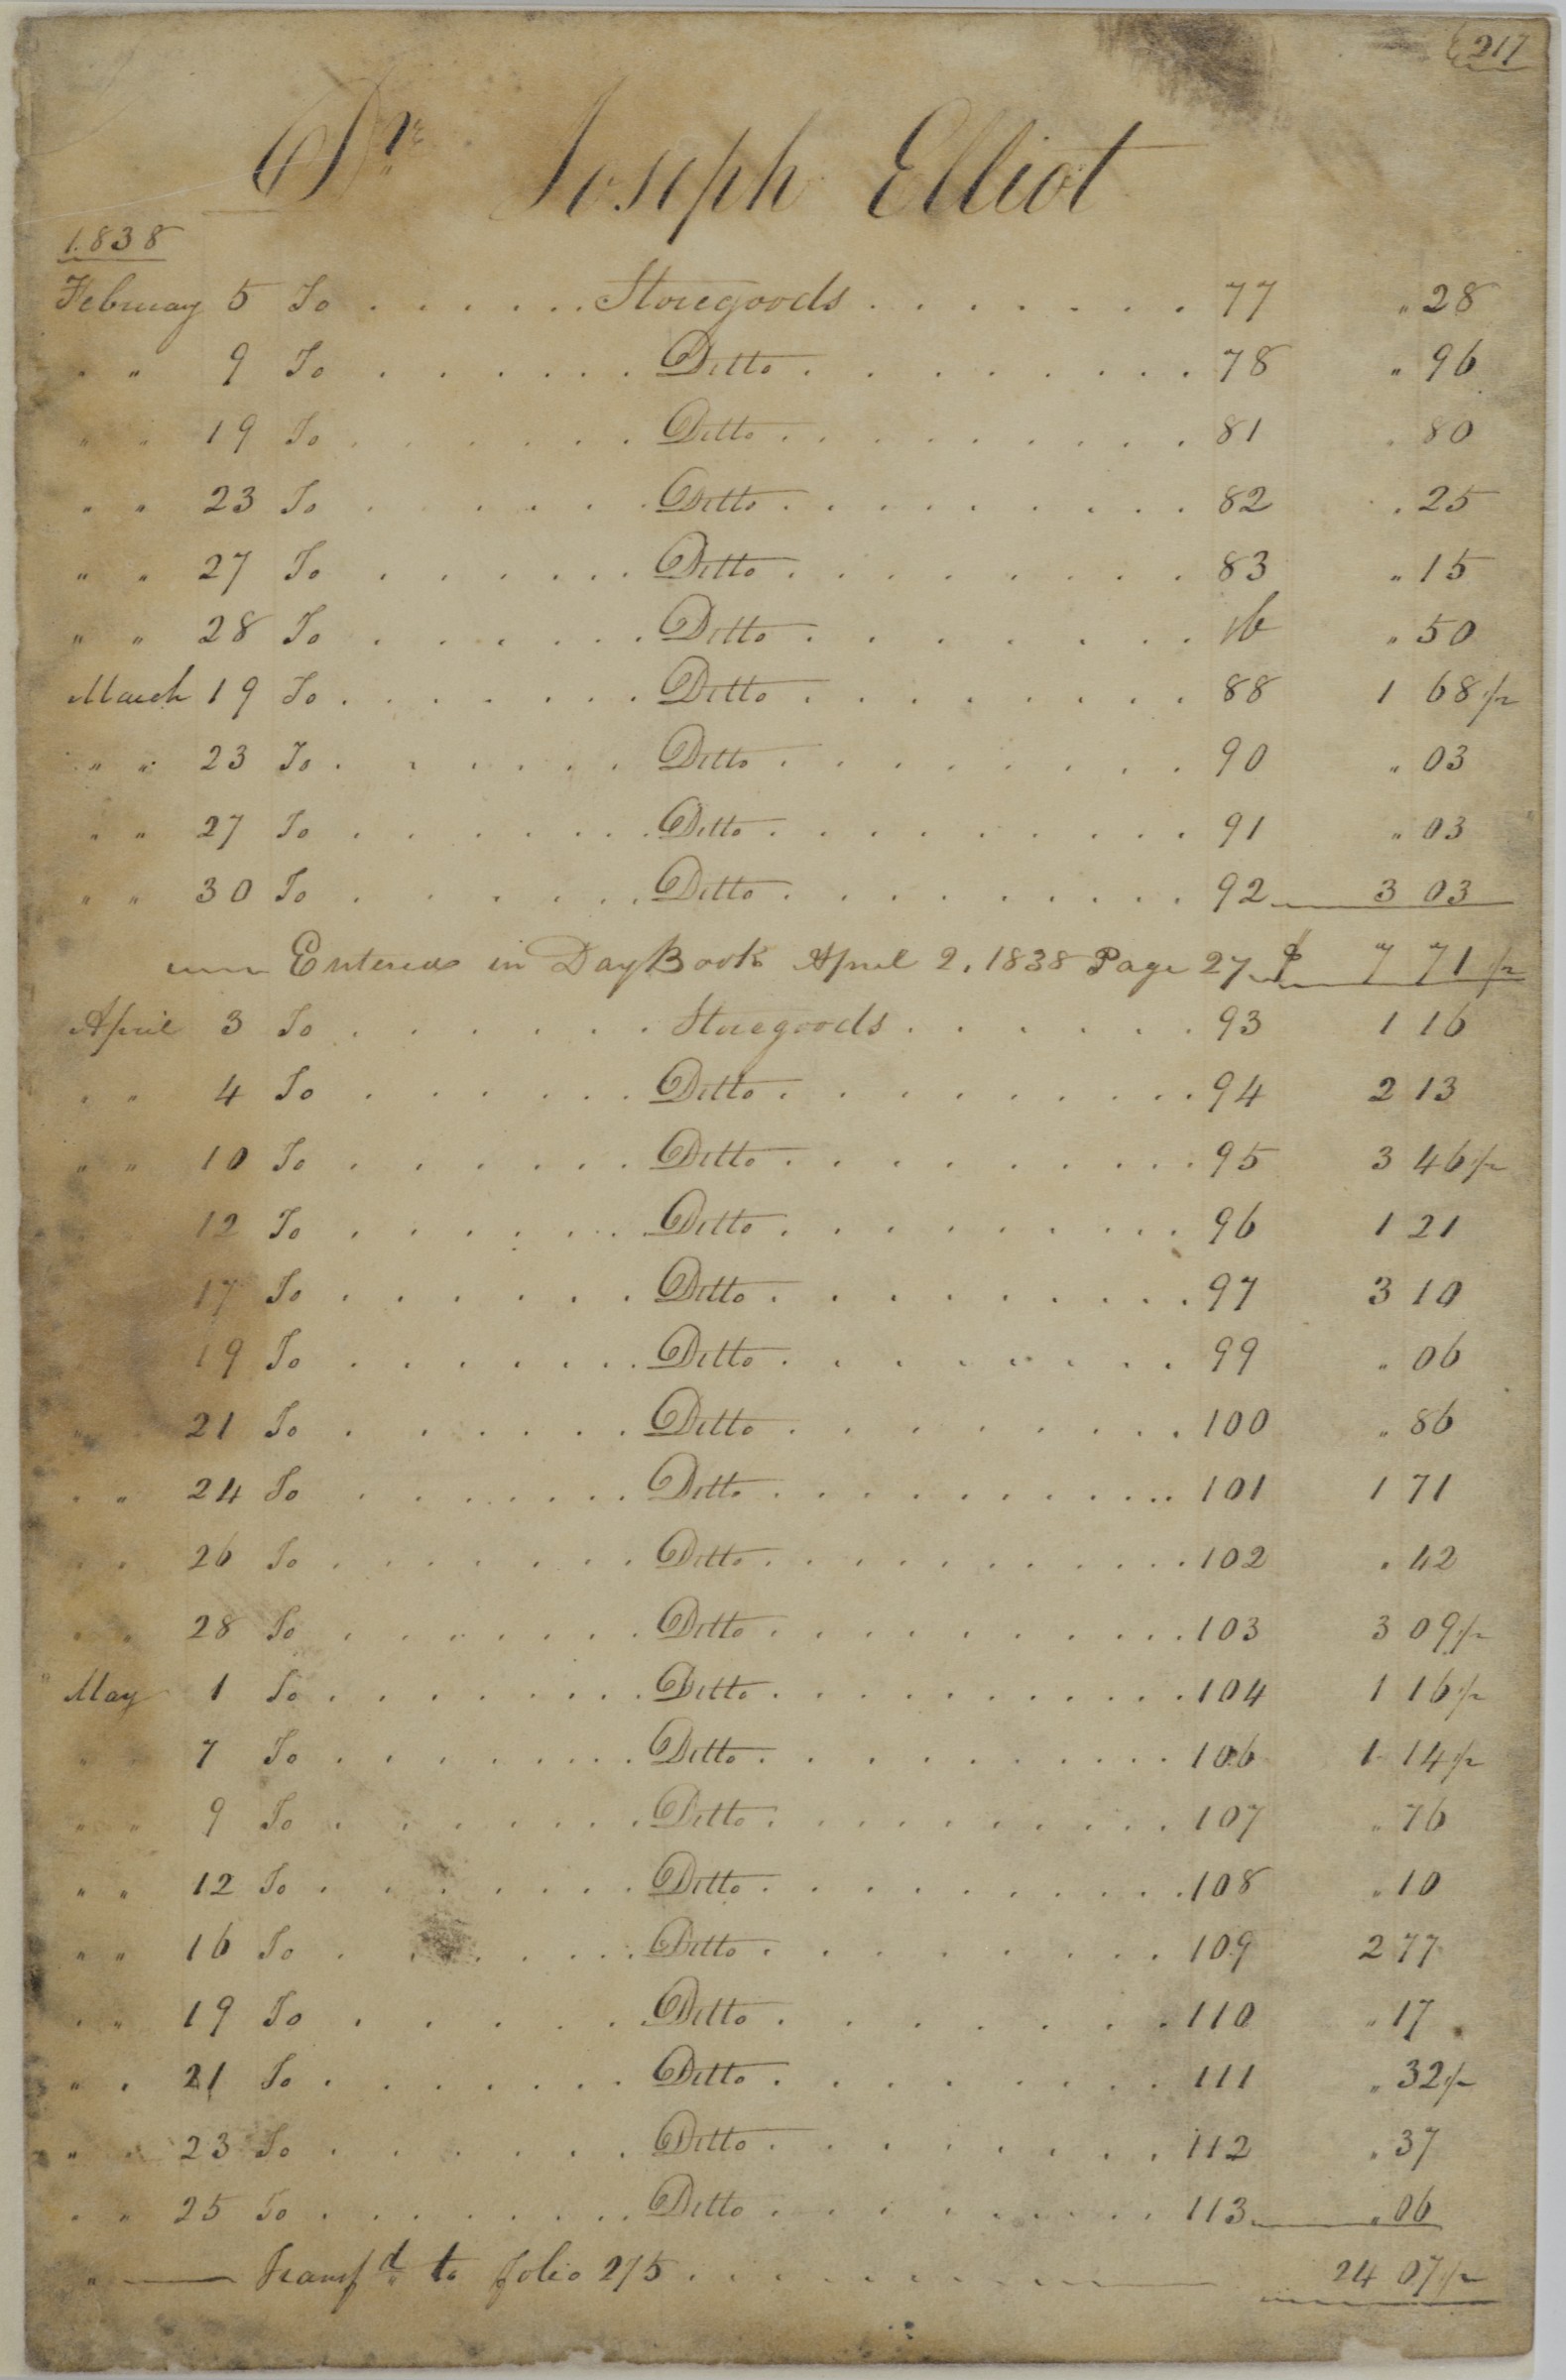 217
Dr. Joseph Elliot
1838
February 5 To . . . . . . Storegoods . . . . . . . 77 " 28
" " 9 To . . . . . . Ditto . . . . . . . . . 78 " 96
" " 19 To . . . . . . . Ditto . . . . . . . . . 81 " 80
" " 23 To . . . . . . Ditto . . . . . . . . . 82 " 25
" " 27 To . . . . . . Ditto . . . . . . . . . 83 " 15
" " 28 To . . . . . . . Ditto . . . . . . . . ib " 50
March 19 To . . . . . . . Ditto . . . . . . . . . 88 1 68/2
" " 23 To . . . . . . Ditto . . . . . . . . . 90 " 03
" " 27 To . . . . . . . Ditto . . . . . . . . . . 91 " 03
" " 30 To . . . . . . Ditto . . . . . . . . . 92 3 03
" Entered in Day Book April 2, 1838 Page 27 $ 7 71/2
April 3 To . . . . . . . Storegoods . . . . . . 93 1 16
" " 4 To . . . . . . Ditto . . . . . . . . . 94 2 13
" " 10 To . . . . . . Ditto . . . . . . . . . 95 3 46/2
12 To . . . . . . . Ditto . . . . . . . . . 96 1 21
17 To . . . . . . Ditto . . . . . . . . . 97 3 10
19 To . . . . . . . Ditto . . . . . . . . . 99 " 06
" 21 To . . . . . . Ditto . . . . . . . . . 100 " 86
" " 24 To . . . . . . . Ditto . . . . . . . . . . 101 1 71
" " 26 To . . . . . . . Ditto . . . . . . . . . . . 102 " 42
" " 28 To . . . . . . . Ditto . . . . . . . . . . 103 3 09/2
" May 1 To . . . . . . . . Ditto . . . . . . . . . . . 104 1 16/2
" " 7 To . . . . . . . Ditto . . . . . . . . . . 106 1 14/2
" " 9 To . . . . . . Ditto . . . . . . . . . . 107 " 76
" " 12 To . . . . . . . Ditto . . . . . . . . . . 108 " 10
" " 16 To . . . . . . . Ditto . . . . . . . . 109 2 77
" " 19 To . . . . . Ditto . . . . . . . . 110 " 17
" " 21 To . . . . . . . Ditto . . . . . . . . 111 " 32/2
" " 23 To . . . . . . Ditto . . . . . . . . 112 " 37
" " 25 To . . . . . . . . Ditto . . . . . . . . . 113 " 06
" Transfd to folio 275 . . . . . . . . 24 07/2